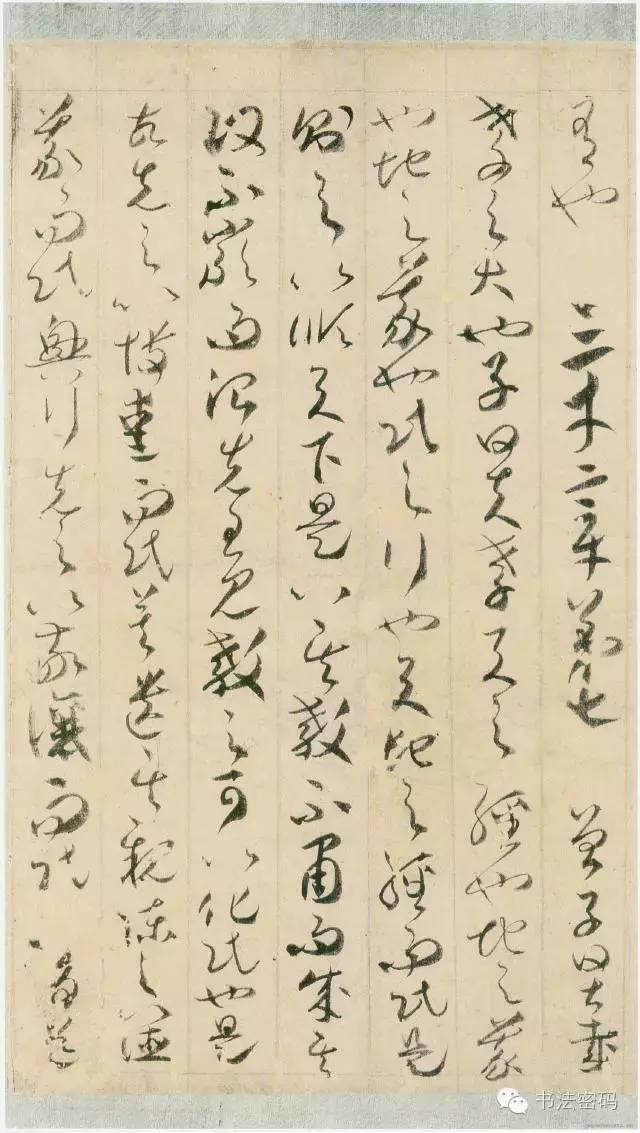 有也 三才章第七 曾子曰甚哉
孝之大也子曰夫孝天之經也地之義
也地之義也民之行也天地之經而民是
則之以順天下是以其教不肅而成其
政不嚴而治先王見教之可以化民也是
故先之以博愛而民莫遺其親陳之以德
義而民興行先之以敬讓而民
书法密码